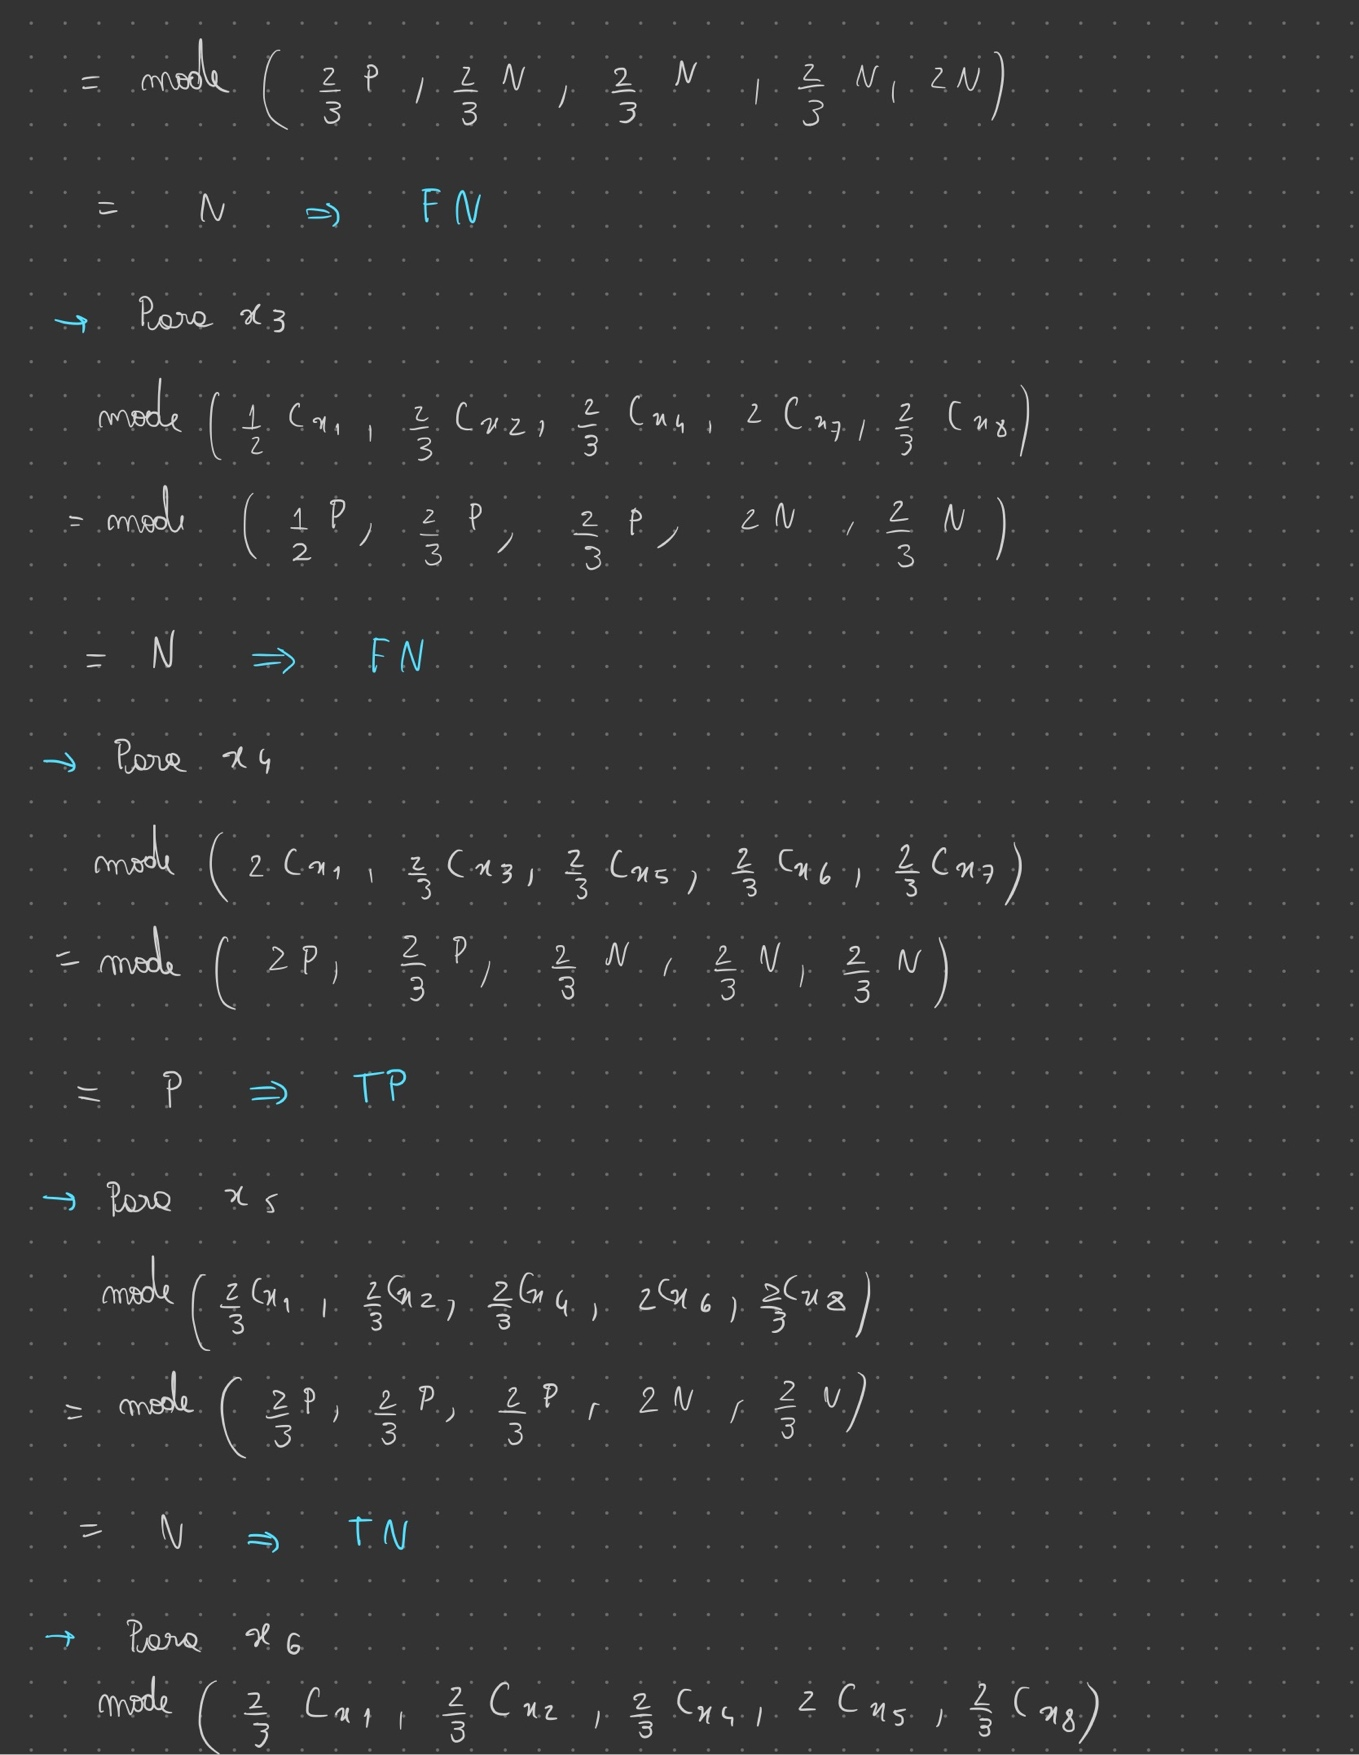 = mode ( 2/3 P , 2/3 N , 2/3 N , 2/3 N , 2N )
= N ⇒ FN
→ Para x3
mode ( 1/2 Cx1 , 2/3 Cx2 , 2/3 Cx4 , 2 Cx7 , 2/3 Cx8 )
= mode ( 1/2 P , 2/3 P , 2/3 P , 2 N , 2/3 N )
= N ⇒ FN
→ Para x4
mode ( 2 Cx1 , 2/3 Cx3 , 2/3 Cx5 , 2/3 Cx6 , 2/3 Cx7 )
= mode ( 2P , 2/3 P , 2/3 N , 2/3 N , 2/3 N )
= P ⇒ TP
→ Para x5
mode ( 2/3 Cx1 , 2/3 Cx2 , 2/3 Cx4 , 2 Cx6 , 2/3 Cx8 )
= mode ( 2/3 P , 2/3 P , 2/3 P , 2 N , 2/3 N )
= N ⇒ TN
→ Para x6
mode ( 2/3 Cx1 , 2/3 Cx2 , 2/3 Cx4 , 2 Cx5 , 2/3 Cx8 )